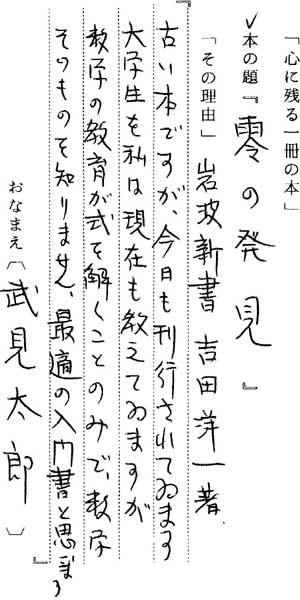 「心に残る一冊の本」
✓本の題『零の発見』
「その理由」岩波新書 吉田洋一著.
『古い本ですが、今日も刊行されてゐます
大学生を私は現在も教えてゐますが
数学の教育が式を解くことのみで、数学
そのものを知りません、最適の入門書と思ます』
おなまえ〔武見太郎〕